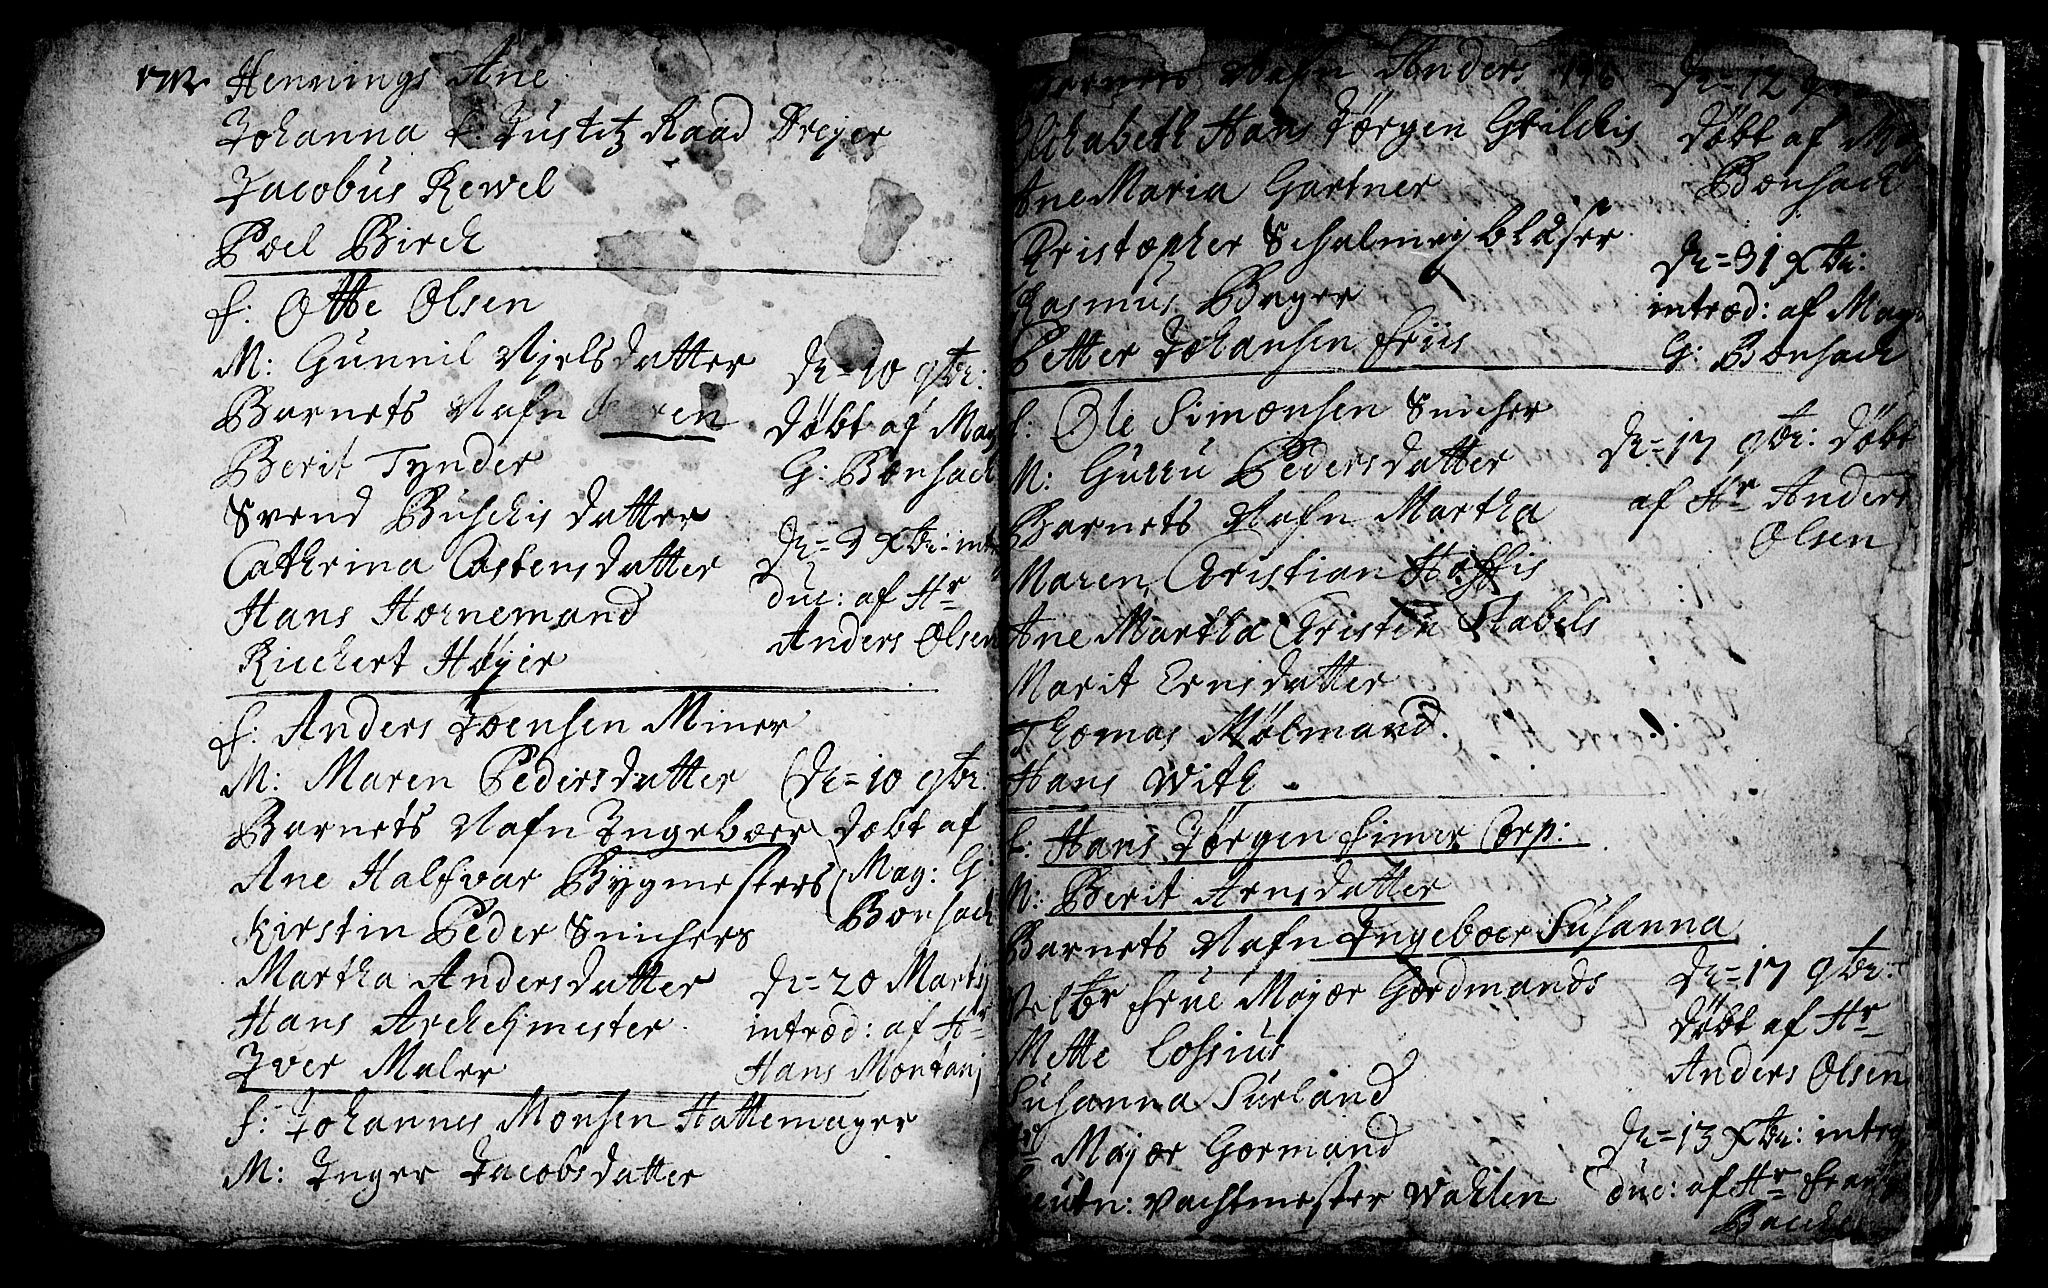 1712. Hennings Ane
Johanna k. Justitz Raad Dreyer
Jacobus Rewel
Poel Birch
F: Otte Olsen
M: Gunnil Njelsdatter
Barnets Nafn
Berit Tynder
Svend Buschis datter
Cathrina Castensdatter
Hans Hornemand
Riechert Høyer
D = 10 9br:
Døbt af Mag
G: Bonsach
D = 3 Xbr: intro
duc: af Hr
Anders Olsen
F: Anders Joensen Miner
M: Maren Pedersdatter
Barnets Nafn Ingeboer
Ane Halfvar Bygmesters
Kirstin Peder Snichers
Martha Andersdatter
Hans Archelimester
Iver Maler
D = 10 9br:
Døbt af
Mag: G:
Bonsach
D = 20 Martij
introd: af Hr
Hans Montanj
F: Johannes Monsen Hattemager
M: Inger Jacobsdatter
Barnets Nafn Anders 146
Elisabeth Hans Jørgen Geilchis
Ane Maria Gartner
Christopher Schalmeyblåser
Rasmus Bager
Petter Johansen Friis
D = 12
Døbt af Mag
Bonsach
D = 31 Xbr:
introd: af Mag
G: Bonsach
F: Ole Simonsen Snicher
M: Gurru Pedersdatter
Barnets Nafn Martha
Maren Christian Hoffis
Ane Martha Christen Stabels
Marit Ernsdatter
Thomas Mølmand.
Hans With
D = 17 9br: Døbt
af Hr Anders
Olsen
F: Hans Jørgen Simer Corp:
M: Berit Arnsdatter
Barnets Nafn Ingeboer Susanna
Velbr Frue Major Gordmands
Mette Cossius
Susanna Surland
Hr Major Gormand
Leutn: Vachtmester Wahlen
D = 17 9br:
Døbt af Hr
Anders Olsen
D = 13 Xbr: intro
duc: af Hr Frantz